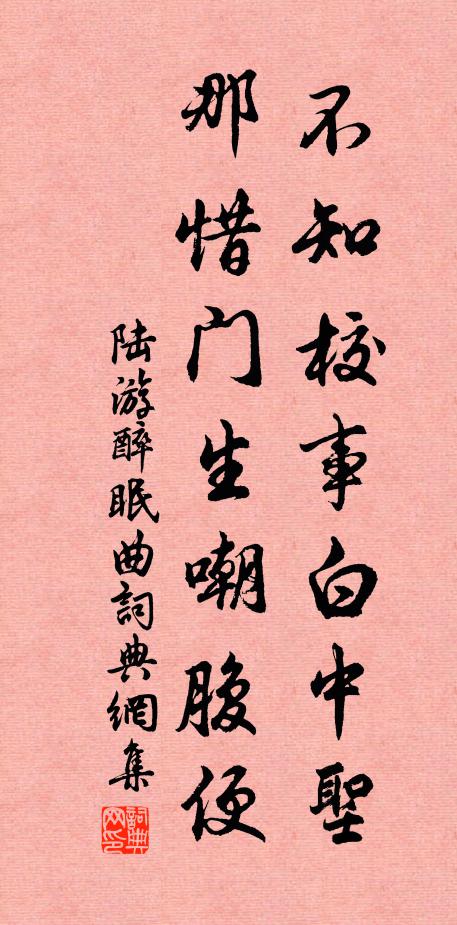 不知校事白中聖
那惜门生嘲腹便
陆游醉眠曲詞典網集
詞典网印